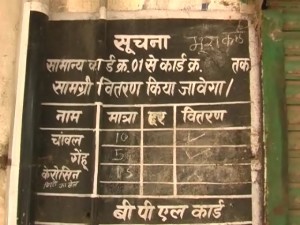 सूचना
सामान्य कार्ड क्र. 01 से कार्ड क्र. तक
सामग्री वितरण किया जावेगा।
नाम मात्रा दर वितरण
चांवल 10
गेंहू 5
केरोसिन 15
बी पी एल कार्ड